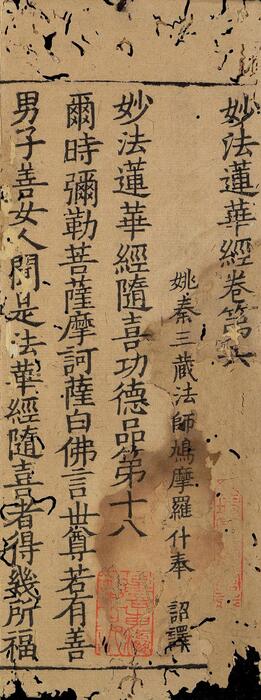 妙法蓮華經卷第六
姚秦三藏法師鳩摩羅什奉 詔譯
妙法蓮華經隨喜功德品第十八
爾時彌勒菩薩摩訶薩白佛言世尊若有善
男子善女人聞是法華經隨喜者得幾所福